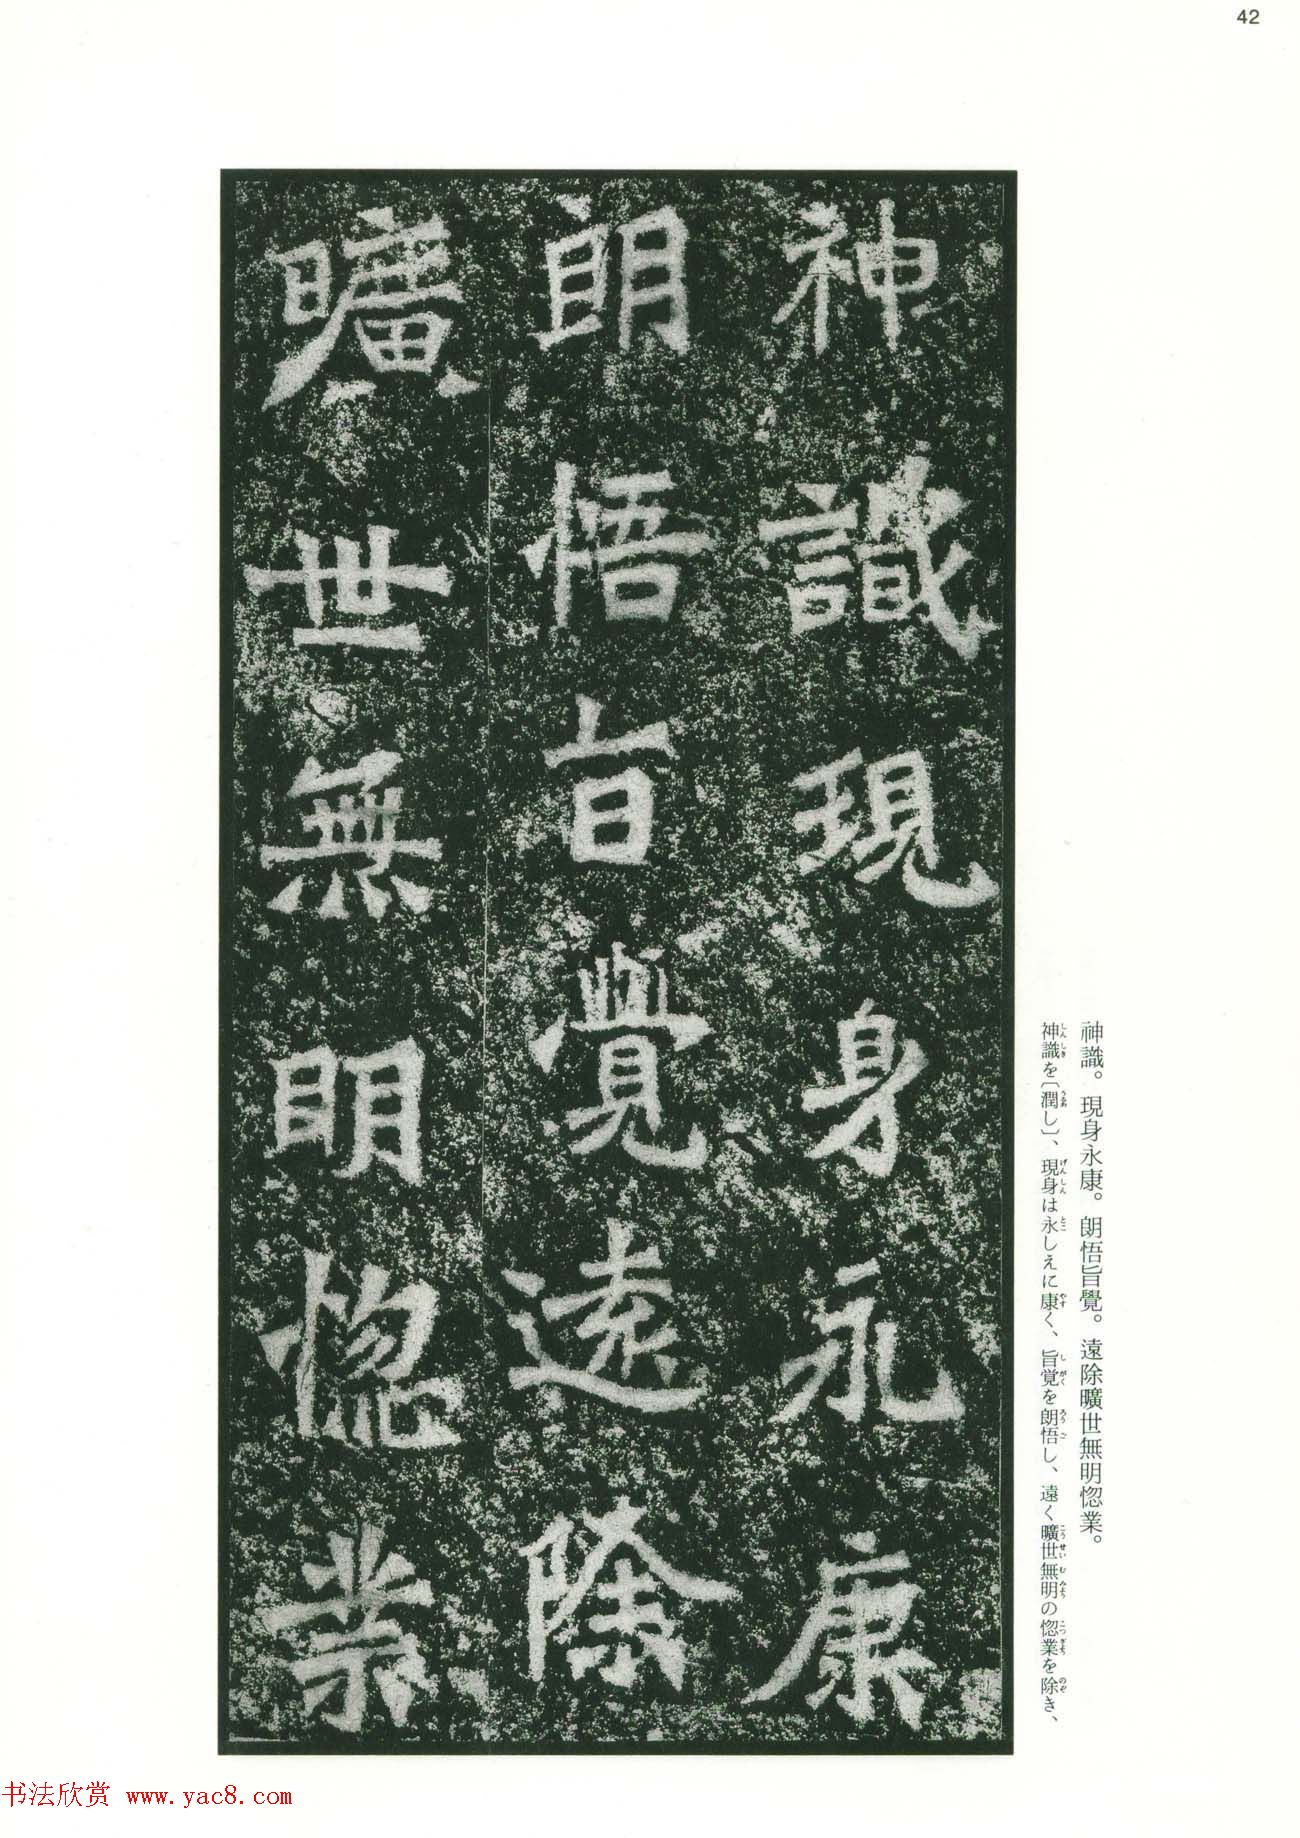 42
神識現身永康
朗悟旨覺遠除
曠世無明惚業
神識。現身永康。朗悟旨覺。遠除曠世無明惚業。
神識を〔潤し〕、現身は永しえに康く、旨覚を朗悟し、遠く曠世無明の惚業を除き、
书法欣赏 www.yac8.com